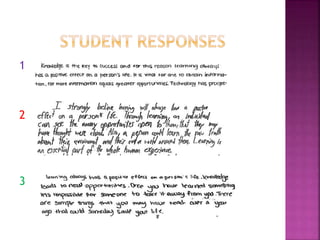 STUDENT RESPONSES
1
Knowledge is the key to success and for this reason learning always
has a positive effect on a person's life. It is vital for one to obtain informa-
tion, for more information equals greater opportunities. Technology has progres-
2
I strongly believe learning will always have a positive
effect on a person's life. Through learning, an individual
can see the many opportunities open to them, that they may
have thought were closed. Also, a person could learn the truth
about their environment and their world around them. Learning is
an essential part of the whole human experience.
3
Learning always has a positive effect on a person's life. Knowledge
leads to new opportunities. Once you have learned something
it's impossible for someone to take it away from you. There
are simple things that you may have read over a year
ago that could someday save your life.